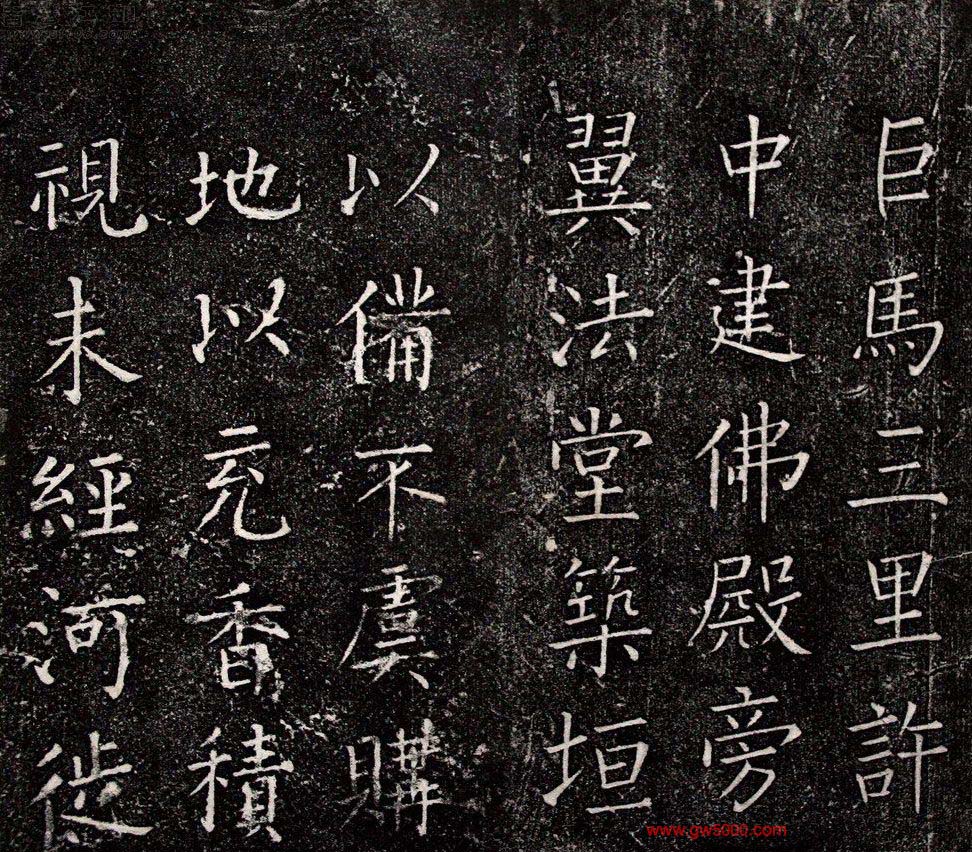 巨馬三里許
中建佛殿旁
翼法堂築垣
以備不虞購
地以充香積
視未經河徙
www.gw5000.com